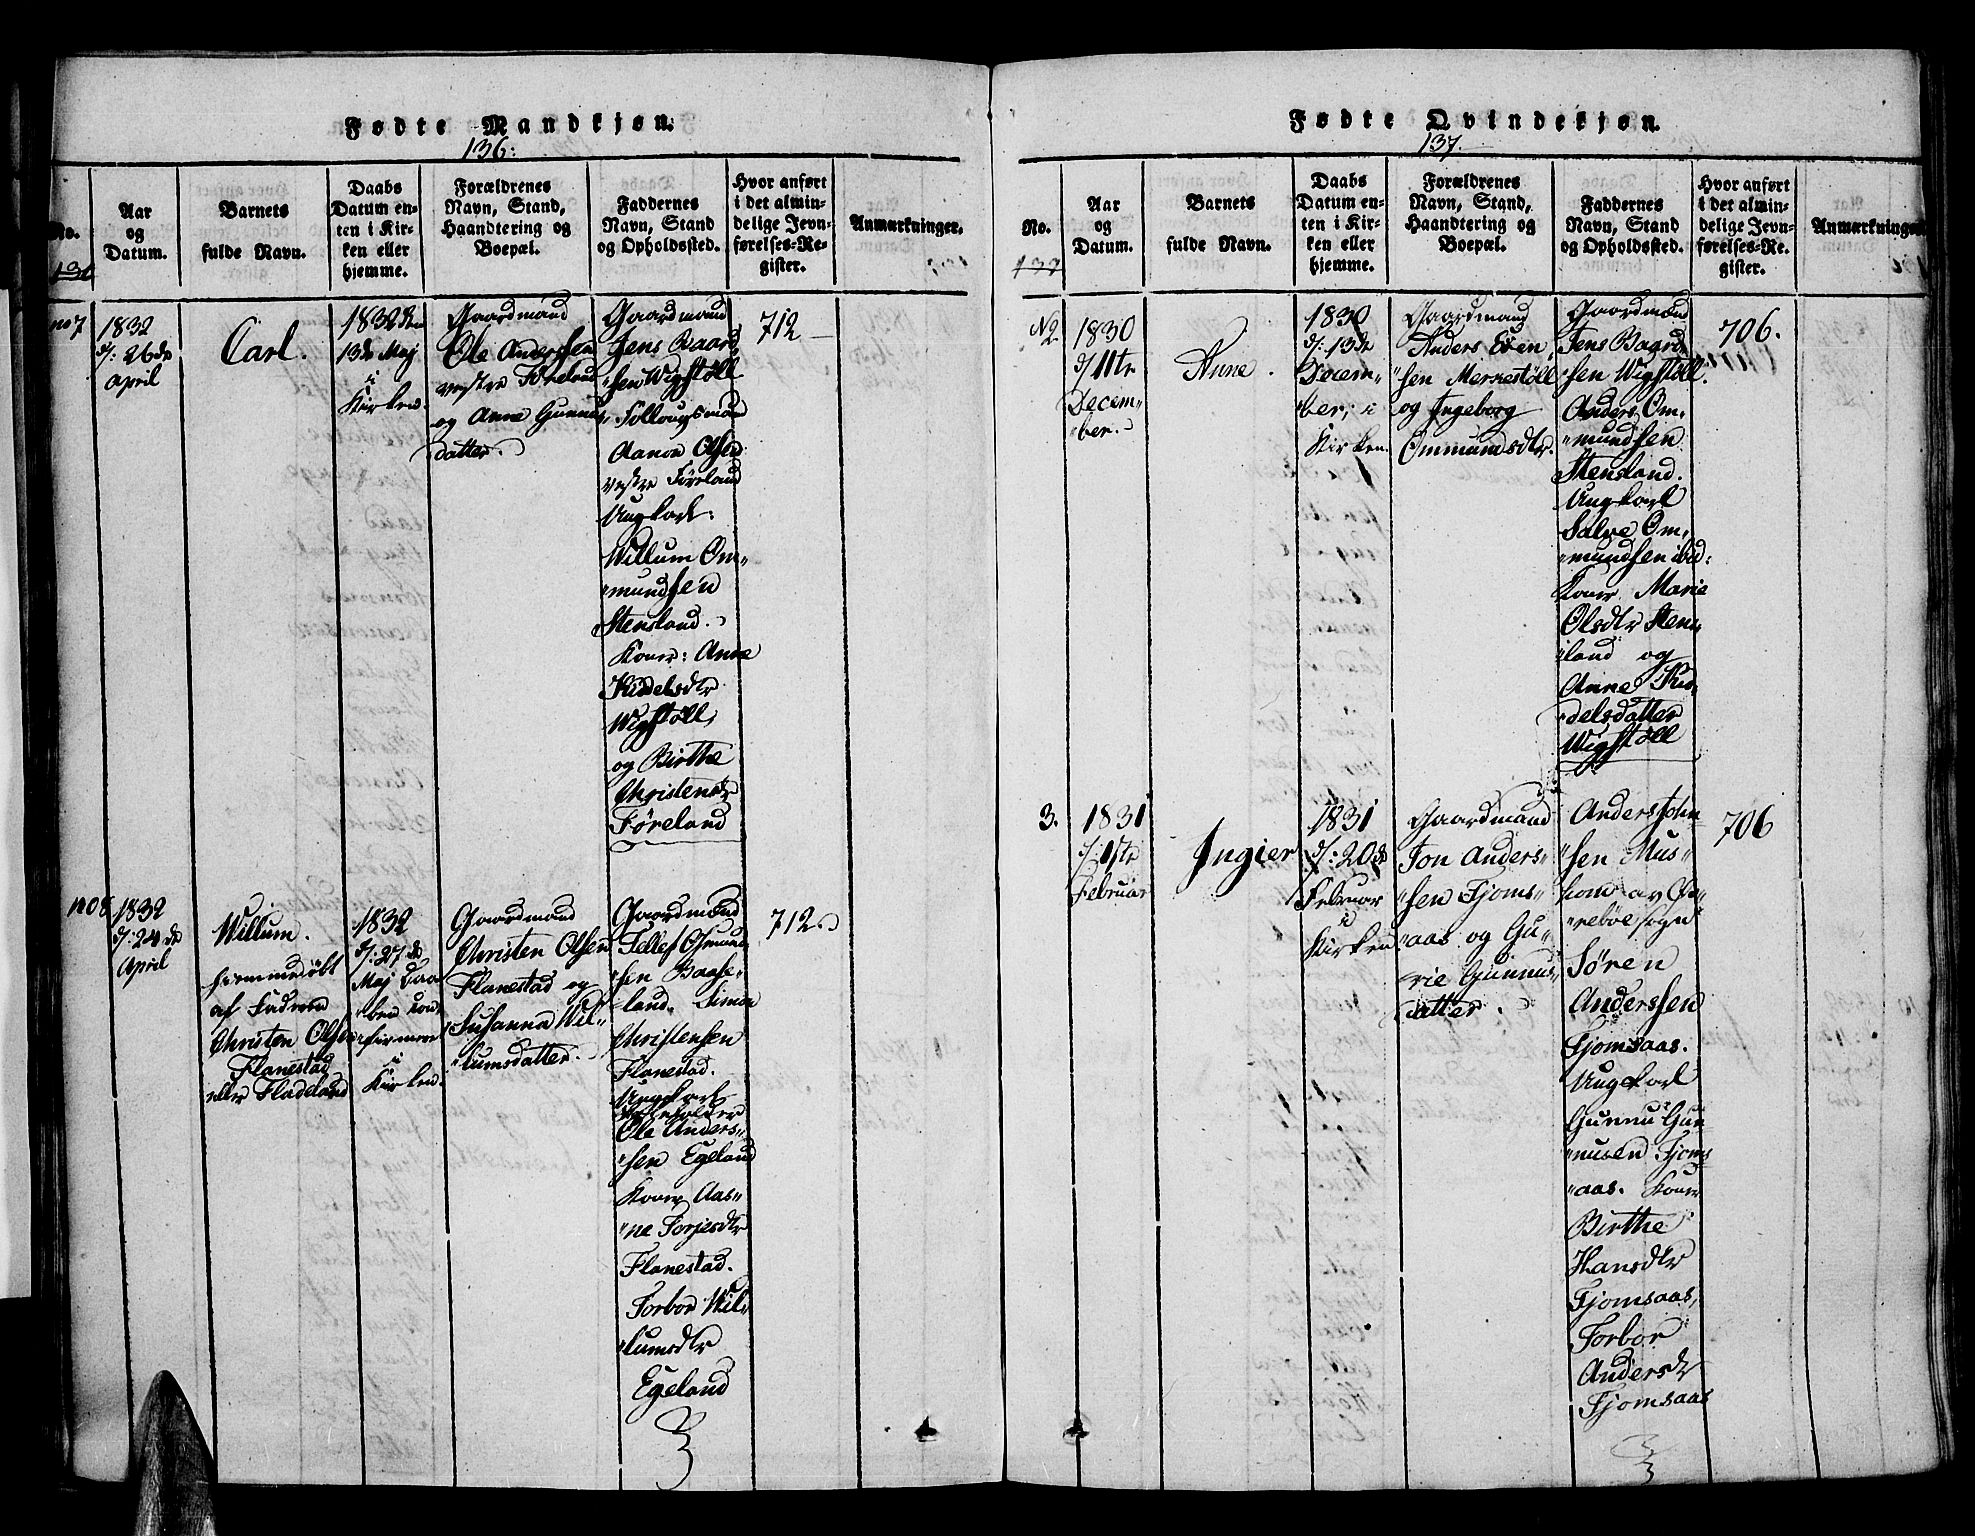 Fødte Mandkjøn.
136.
No.
Aar
og
Datum.
Barnets
fulde Navn.
Daabs
Datum en-
ten i Kir-
ken eller
hjemme.
Forældrenes
Navn, Stand,
Haandtering og
Boepæl.
Faddernes
Navn, Stand
og Opholdssted.
Hvor anført
i det almin-
delige Jevn-
førelses-Re-
gister.
Anmærkninger.
no 7
1832
d: 26de
April
Carl.
1832 den
13de Maj
i
Kirken.
Gaardmand
Ole Anderssen
vestre
og Anne Gunnus
datter.
Gaardmand
Jens Baard
"sen Wigstøll
Aanon Olsen
vestre Føreland
Ungkarl:
Willum Om=
"mundsen
Stensland.
Koner: Anne
Kiddelsdtr
Wigstøll
og Birthe
Christensdtr
Føreland
712
no 8
1832
d: 24de
April
Willum.
hjemmedøbt
af Faderen
Christen Olsen
Flanestad
eller Fladeland
1832
d: 27de
Maj Daa
"ben con=
"firmere
i
Kirken.
Gaardmand
Christen Olsen
Flanestad og
Susanna Wil=
"lumsdatter.
Gaardmænd
Tellef Osmund
"sen Baase=
land. Simon
Christensen
Flanestad.
Ungkarl
Ole Anders=
"sen Egeland
Koner Aas=
"ne Torjesdtr
Flanestad.
Torbor Wil=
"lumsdtr
Egeland
712.
Fødte Qvindekjøn.
137.
No.
137
Aar
og
Datum.
Barnets
fulde Navn.
Daabs
Datum en-
ten i Kir-
ken eller
hjemme.
Forældrenes
Navn, Stand,
Haandtering og
Boepæl.
Faddernes
Navn, Stand
og Opholdssted.
Hvor anført
i det almin-
delige Jevn-
førelses-Re-
gister.
Anmærkninger
N2
1830
d/11te
Decem=
"ber.
Anne.
1830
d: 13de
Decem=
ber, i
Kirken.
Gaardmand
Anders Even
"sen Merkestøll
og Ingeborg
Ommundsdtr.
Gaardmænd
Jens Baard
"sen Wigstøll.
Anders Om=
"mundsen
Stensland.
Ungkarl
Salve Om=
"mundsen ibid:
Koner Marie
Olsdtr Stens
"land og
Anne Kid=
"delsdatter
Wigstøll
706.
3.
1831
d: 1ste
Februar
Ingier
1831
d: 20de
Februar
i
Kirken
Gaardmand
Jon Anders=
"sen Fjoms=
"aas og Gu=
rie Gunnus
datter.
Anders John
"sen Mus=
"kom av Øv=
"rebøe sogn
Søren
Anderssen
Fjomsaas.
Ungkarl
Gunnu Gun
"nusen Fjoms
"aas. Koner
Birthe
Hansdtr
Fjomsaas,
Torbor
Andersdtr
Fjomsaas
706